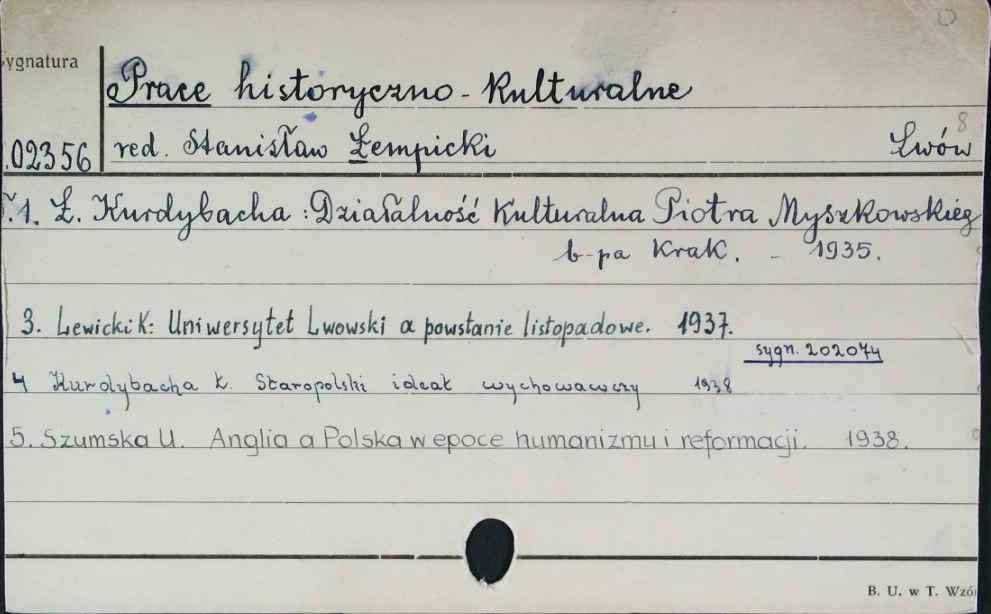 Sygnatura
Prace historyczno-kulturalne
8
02356 red. Stanisław Łempicki Lwów
1. Ł. Kurdybacha: Działalność kulturalna Piotra Myszkowskieg
b-pa Krak. - 1935.
3. Lewicki K: Uniwersytet Lwowski a powstanie listopadowe. 1937.
sygn. 202074
4 Kurdybacha Ł. Staropolski ideał wychowawczy 1938
5. Szumska U. Anglia a Polska w epoce humanizmu i reformacji. 1938.
B. U. w T. Wzór